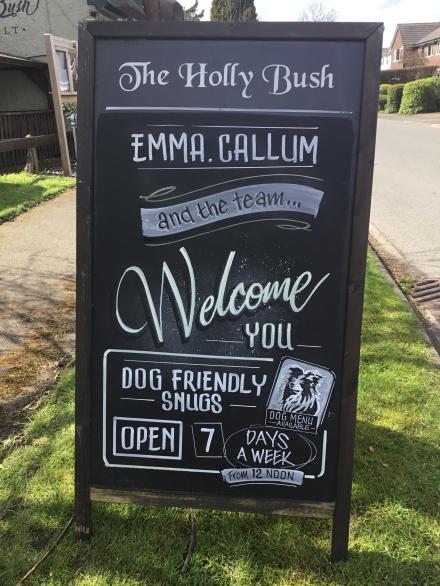 Bush
LT.
The Holly Bush
EMMA. CALLUM
and the team...
Welcome
YOU
DOG FRIENDLY
SNUGS
DOG MENU
AVAILABLE
OPEN 7 DAYS
A WEEK
FROM 12 NOON